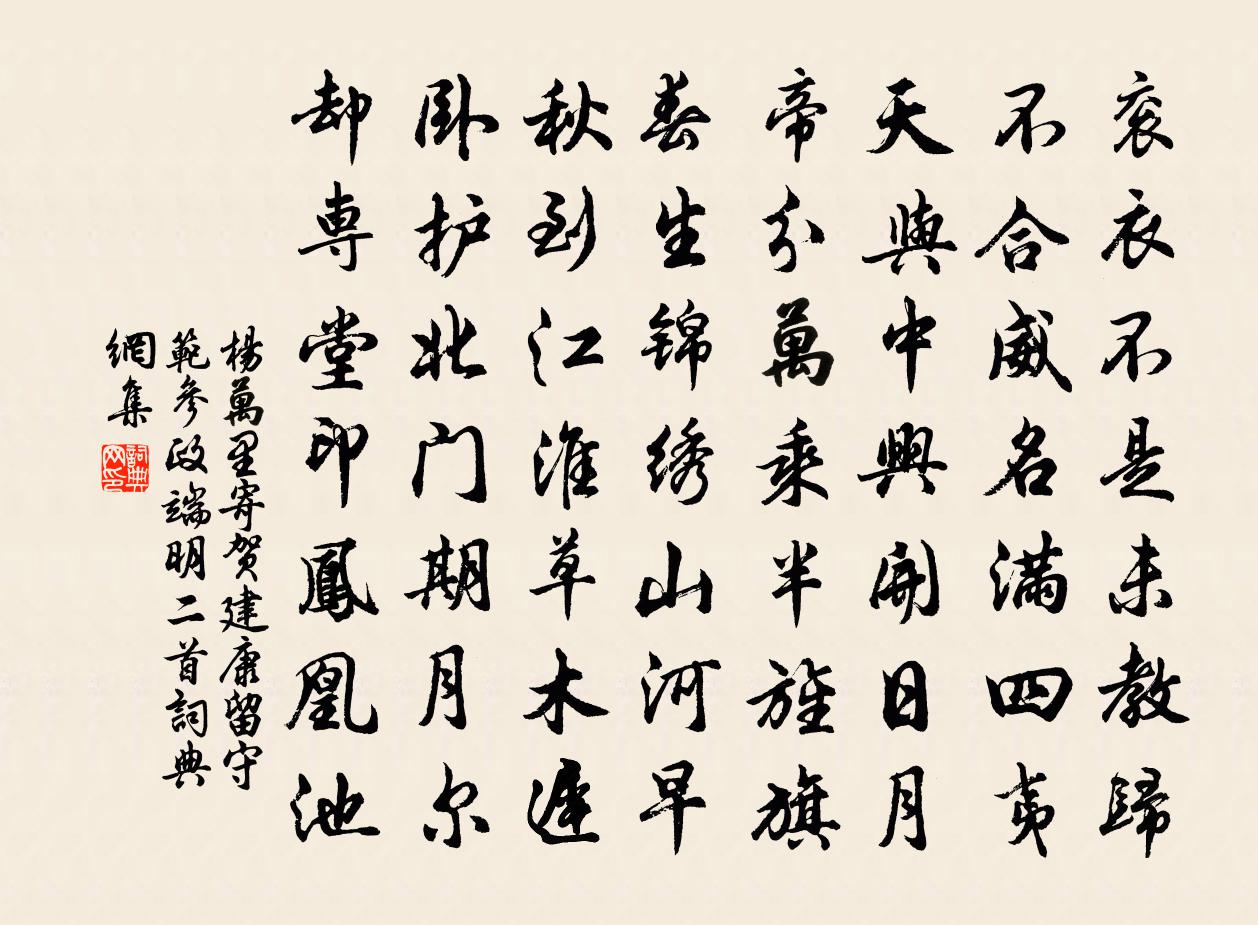 衮衣不是未教歸
不合威名滿四夷
天與中興開日月
帝分萬乘半旌旗
春生锦绣山河早
秋到江淮草木遲
卧护北门期月尔
却専堂印鳳凰池
楊萬里寄贺建康留守
範參政端明二首詞典
網集
詞典网印